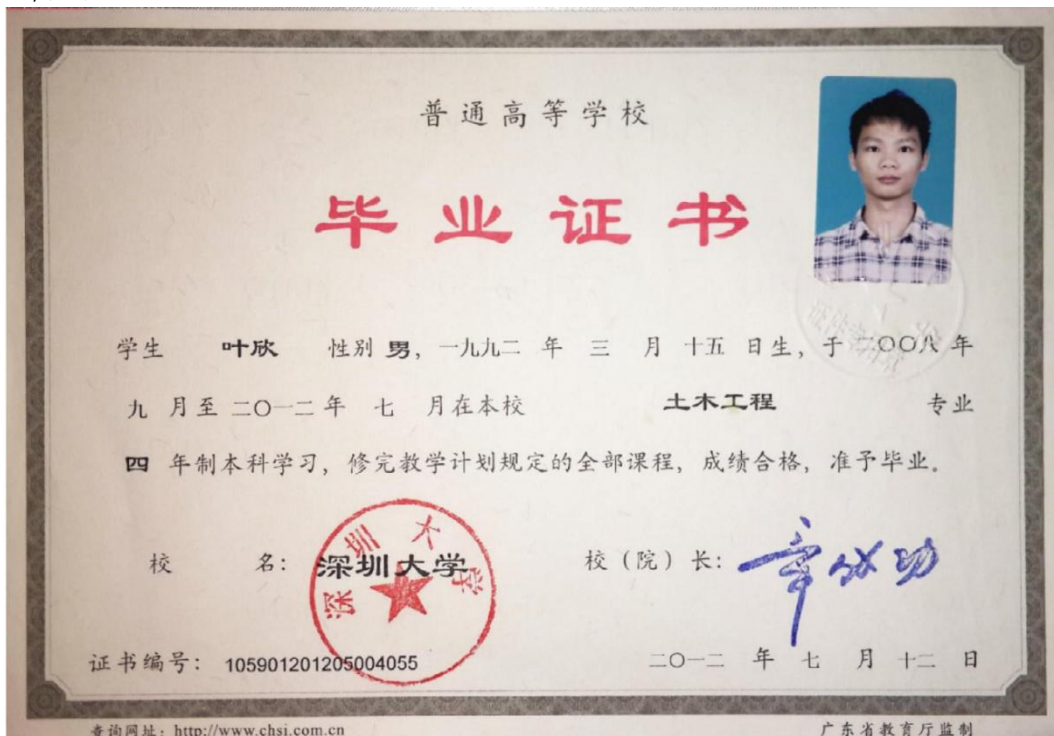 普通高等学校
毕业证书
学生 叶欣 性别 男，一九九二 年 三 月 十五 日生，于 二〇〇八 年
九 月至 二〇一二 年 七 月在本校 土木工程 专业
四 年制本科学习，修完教学计划规定的全部课程，成绩合格，准予毕业。
校 名：深圳大学 校（院）长：章必功
深圳大学
证书编号：105901201205004055 二〇一二 年 七 月 十二 日
查询网址：http://www.chsi.com.cn 广东省教育厅监制